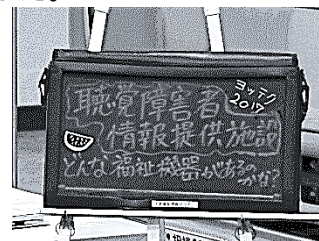 ヨッテク
2017
聴覚障害者
情報提供施設
どんな福祉機器があるのかな?